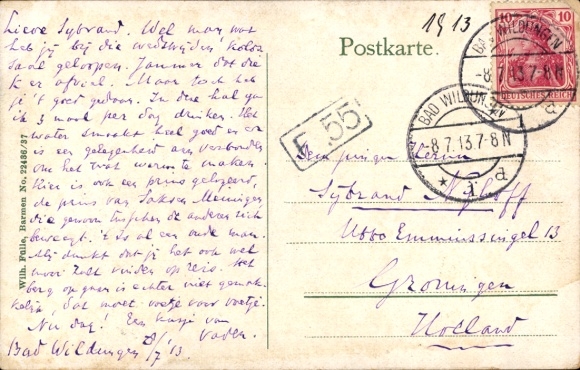 Lieve Sybrand. Wel man, wat
heb jij bij die wedstrijden kolos
saal geloopen. Jammer dat die
K er afviel. Maar toch heb
je 't goed gedaan. In die hal ga
ik 3 maal per dag drinken. Het
water smaakt heel goed en er
is een gelegenheid aan verbonden
om het wat warm te maken.
Hier is ook een prins gelogeerd,
de prins van Saksen Meiningen
die gewoon tusschen de anderen zich
beweegt. 't Is al een oude man.
Mij dunkt dat je het ook wel
mooi zult vinden op reis. Het
berg op gaan is echter niet gemak
kelijk, dat moet voetje voor voetje.
Nu dag! Een kusje van
Vader.
Bad Wildungen 8/7 '13
Wilh. Fülle, Barmen No. 22436/37
1913
Postkarte.
F. 55
10 10
DEUTSCHES REICH
BAD WILDUNGEN
-8.7.13.7-8N
BAD WILDUNGEN
-8.7.13.7-8N
Den jongen Heer
Sybrand Nijhoff
Ubbo Emmiussingel 13
Groningen
Holland